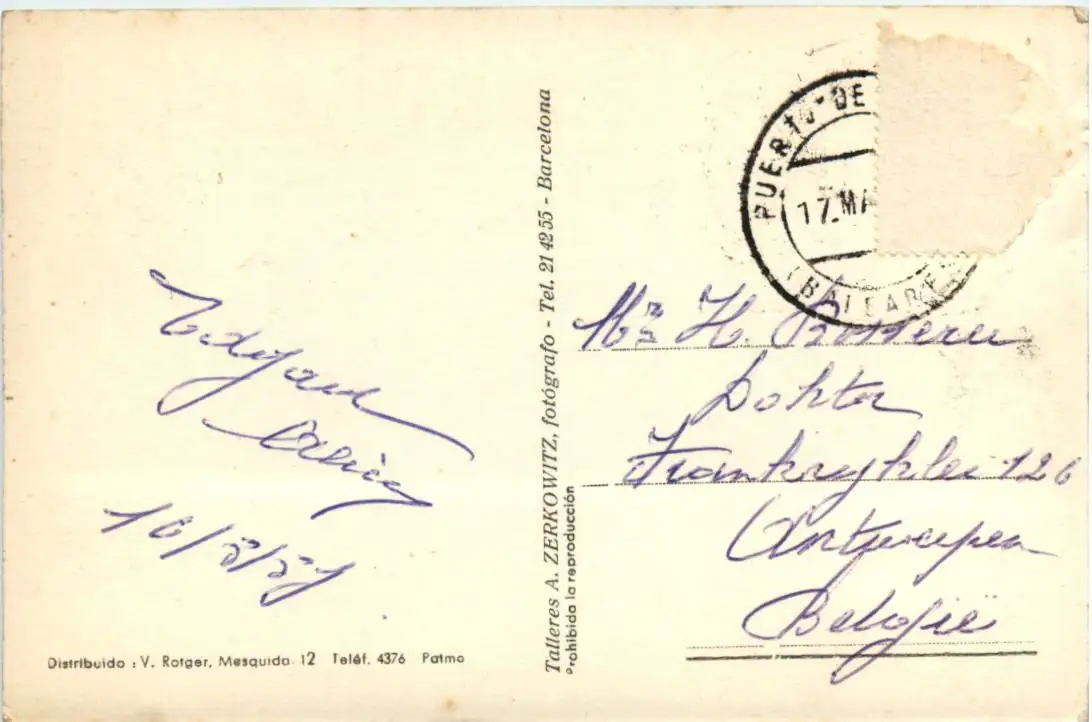 PUERTO DE
17.MA
(BALEARE
Edgard
16/5/57
Mr H.
Dokter
Frankryklei 126
Antwerpen
België
Talleres A. ZERKOWITZ, fotógrafo - Tel. 21 42 55 - Barcelona
Prohibida la reproducción
Distribuido : V. Rotger, Mesquida 12 Teléf. 4376 Palma